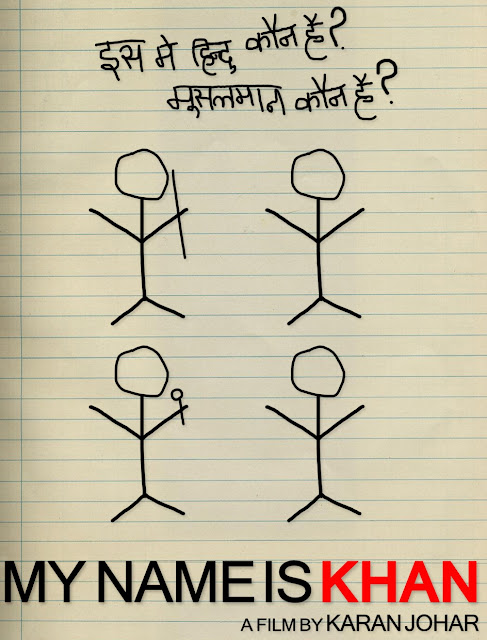 इस मे हिन्दु कौन है?
मूसलमान कौन है?
MY NAME IS KHAN
A FILM BY KARAN JOHAR